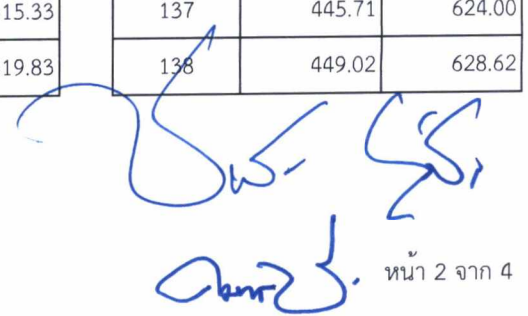 15.33 137 445.71 624.00
19.83 138 449.02 628.62
หน้า 2 จาก 4